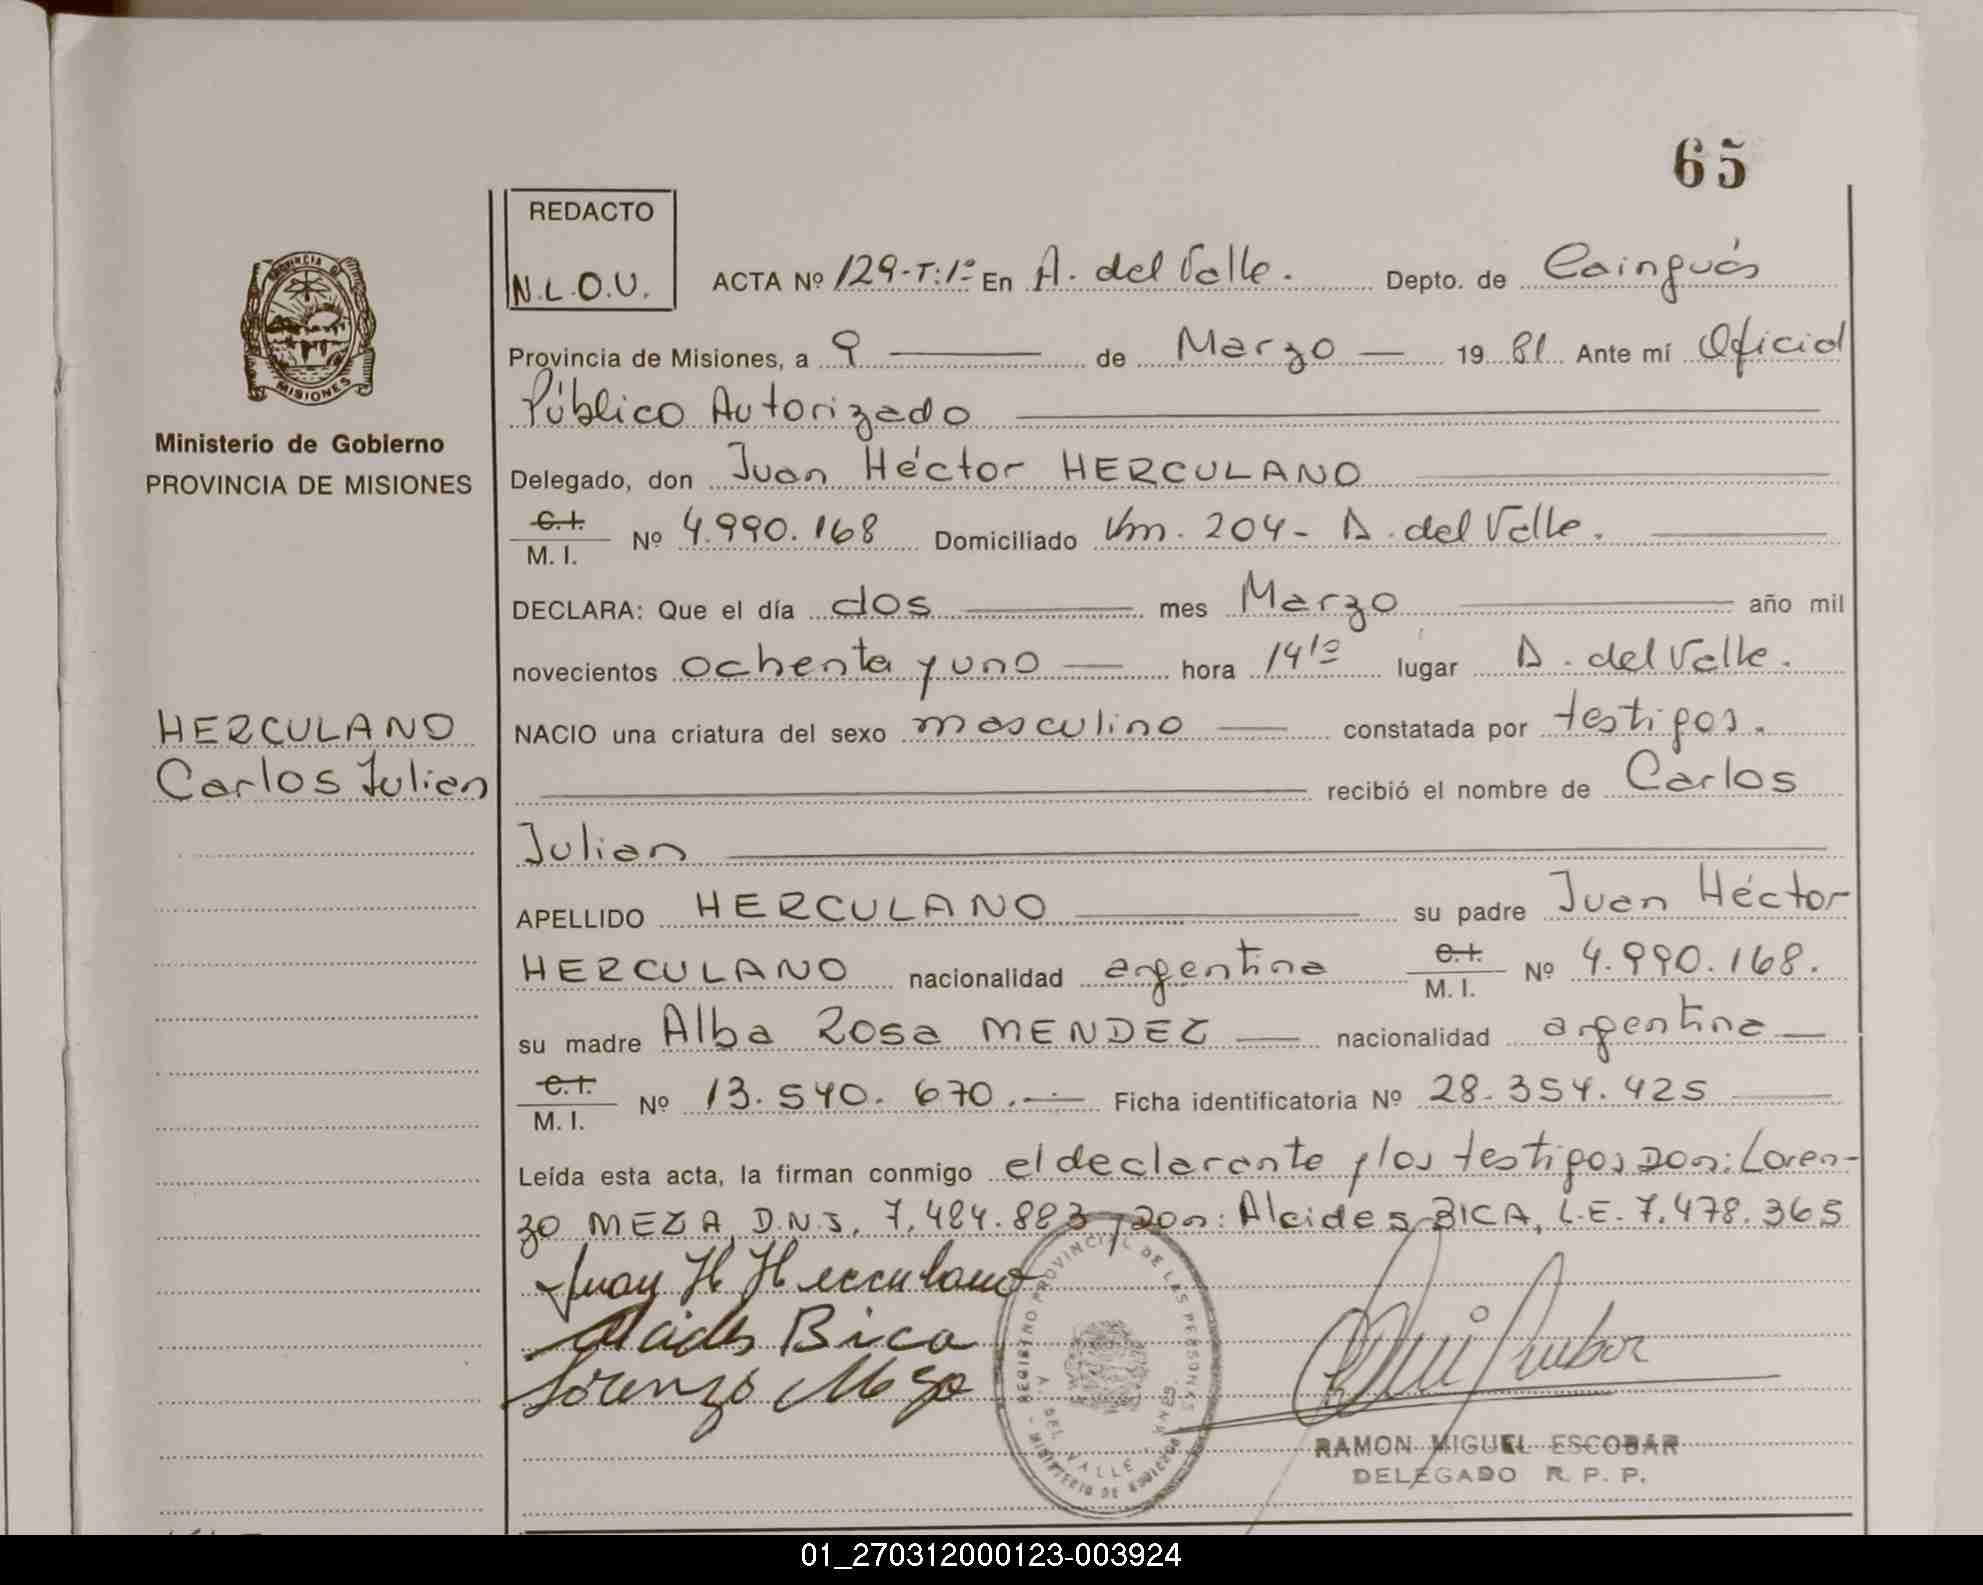 65
REDACTO
N.L.O.U.
ACTA Nº 129-T:1º En A. del Valle. Depto. de Cainguás
Provincia de Misiones, a 9 de Marzo 1981 Ante mí Oficial
Público Autorizado
Ministerio de Gobierno
PROVINCIA DE MISIONES
Delegado, don Juan Héctor HERCULANO
C.I.
M. I. Nº 4.990.168 Domiciliado Km. 204- A. del Valle.
DECLARA: Que el día dos mes Marzo año mil
novecientos ochenta y uno hora 14 lugar A. del Valle.
HERCULANO
Carlos Julian
NACIO una criatura del sexo masculino constatada por testigos.
recibió el nombre de Carlos
Julian
APELLIDO HERCULANO su padre Juan Héctor
HERCULANO nacionalidad argentina C.I. M. I. Nº 4.990.168.
su madre Alba Rosa MENDEZ nacionalidad argentina
C.I.
M. I. Nº 13.540.670.- Ficha identificatoria Nº 28.354.425
Leída esta acta, la firman conmigo el declarante y los testigos Don: Loren-
zo MEZA, D.N.I. 7.484.883 y Don: Alcides BICA, L.E. 7.478.365
Juan H Herculano
Alcides Bica
Lorenzo Meza
REGISTRO PROVINCIAL DE LAS PERSONAS
A. DEL VALLE
RAMON MIGUEL ESCOBAR
DELEGADO R. P. P.
01_270312000123-003924